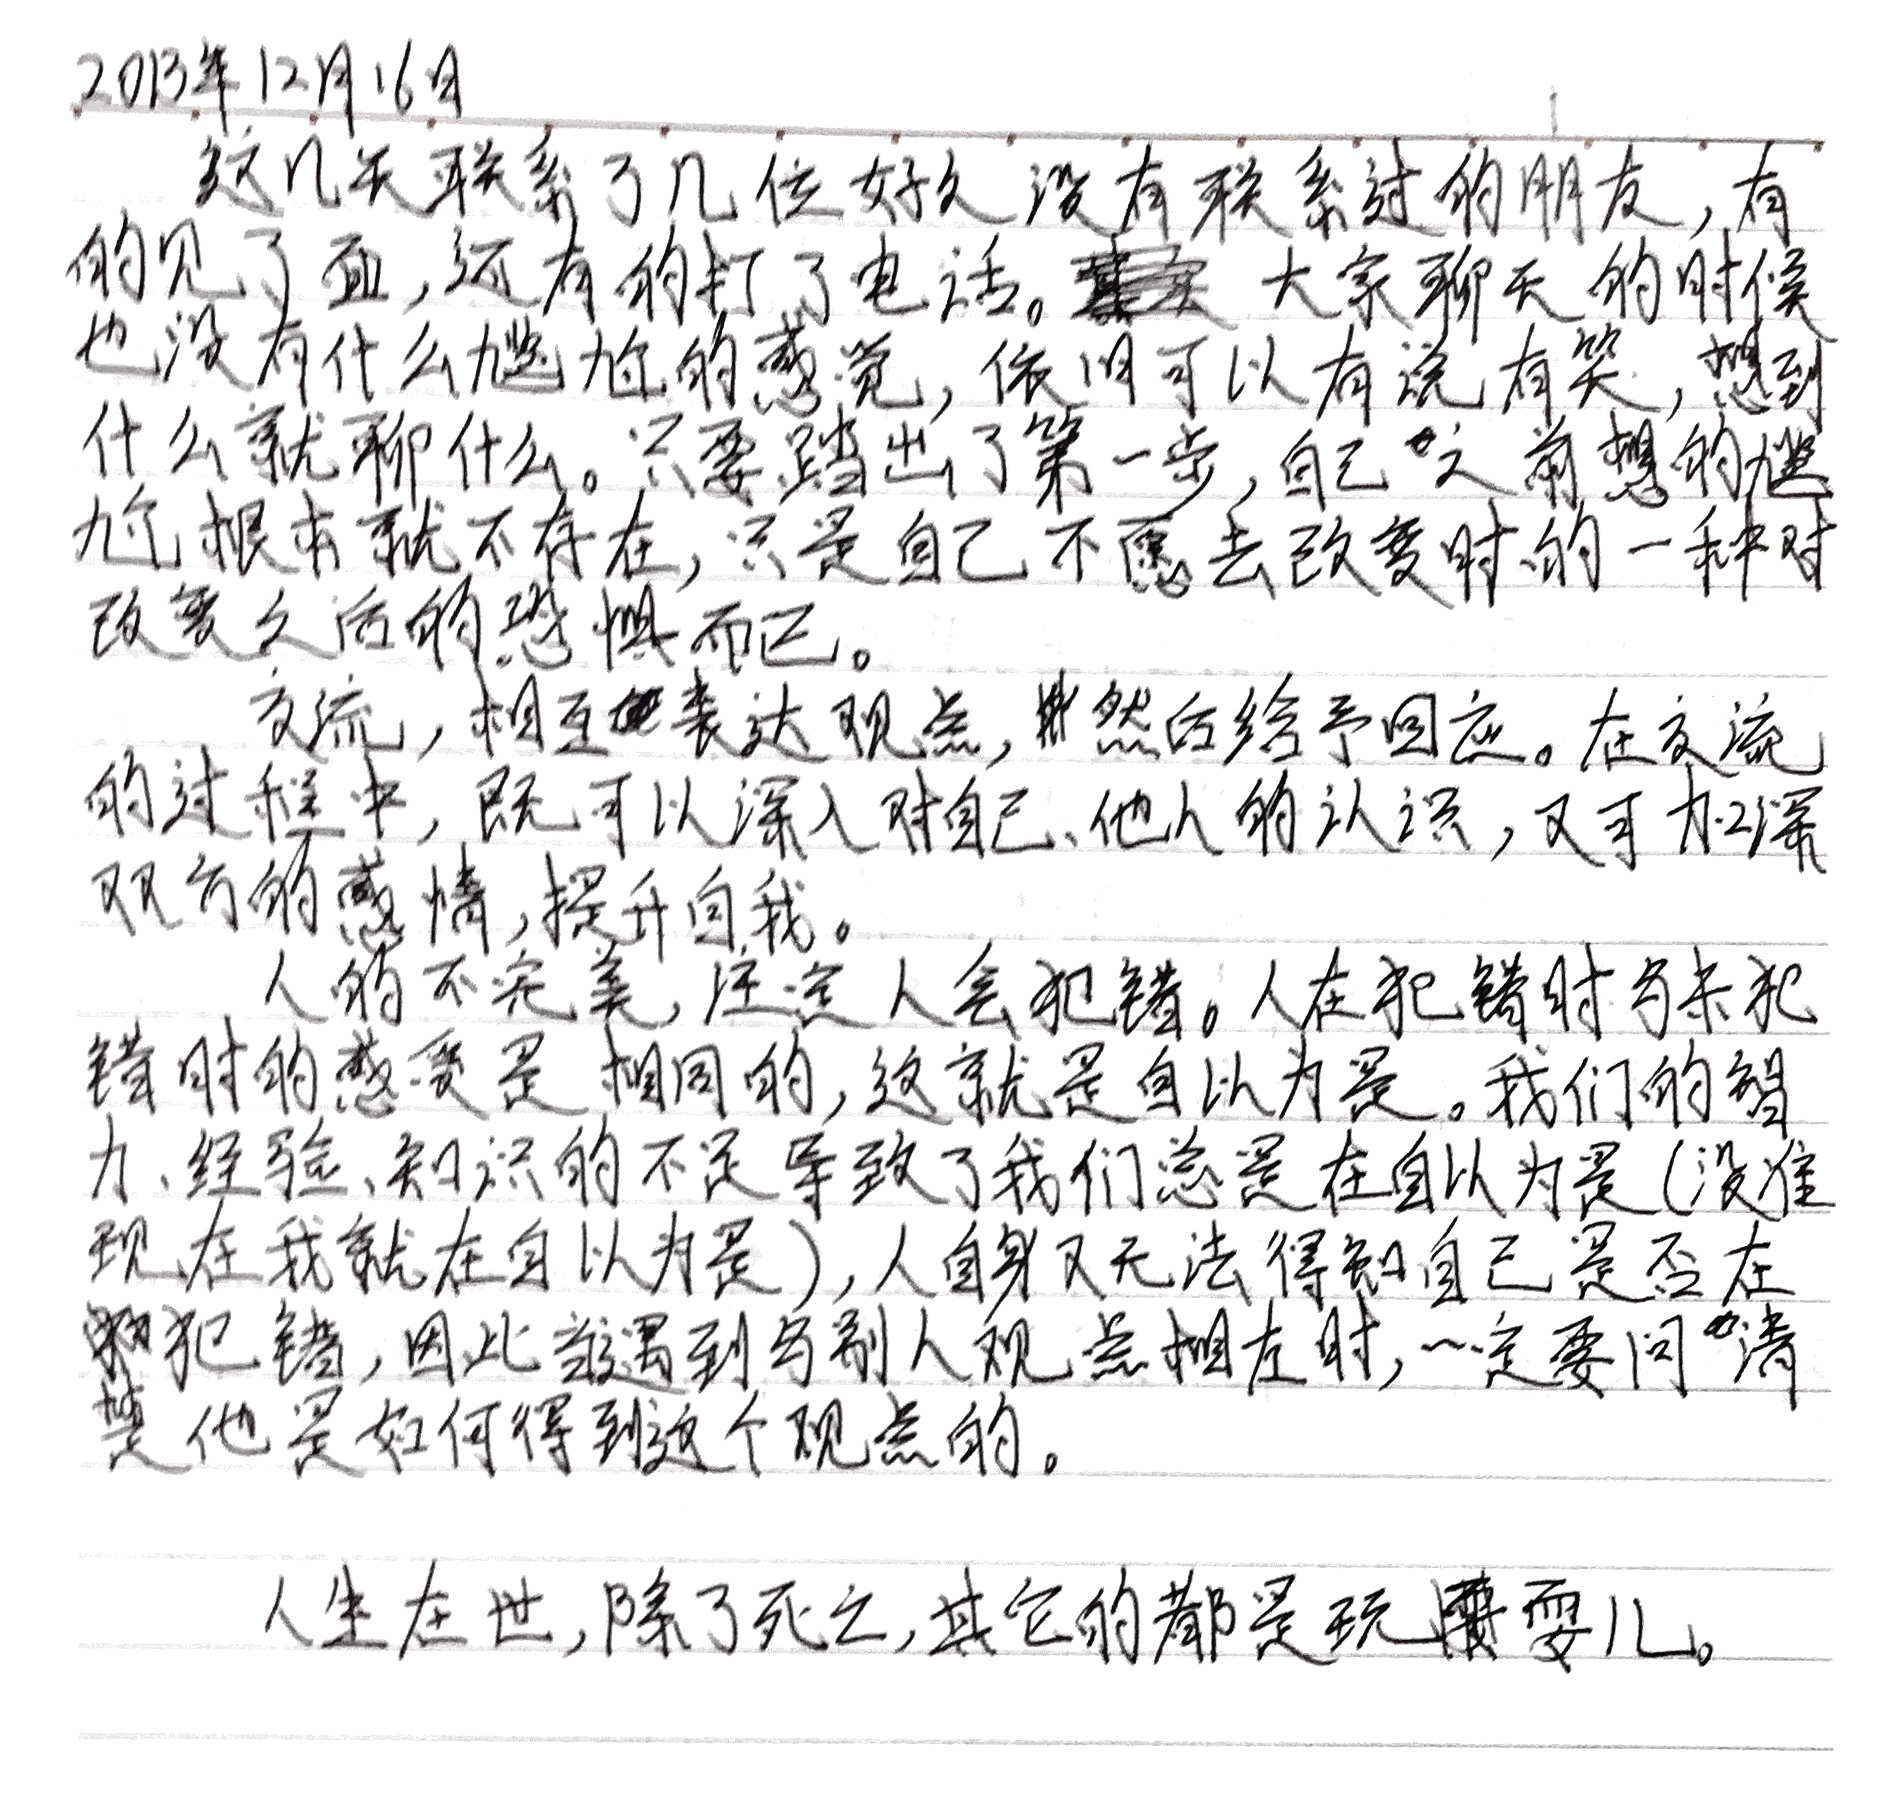 2013年12月16日
这几天联系了几位好久没有联系过的朋友,有
的见了面,还有的打了电话。大家聊天的时候
也没有什么尴尬的感觉,依旧可以有说有笑,想到
什么就聊什么。只要踏出了第一步,自己之前想的尴
尬根本就不存在,只是自己不愿去改变时的一种对
改变之后的恐惧而已。
交流,相互表达观点,然后给予回应。在交流
的过程中,既可以深入对自己、他人的认识,又可加深
双方的感情,提升自我。
人的不完美,注定人会犯错。人在犯错时与未犯
错时的感受是相同的,这就是自以为是。我们的智
力、经验、知识的不足导致了我们总是在自以为是(没准
现在我就在自以为是),人自身又无法得知自己是否在
犯错,因此当遇到与别人观点相左时,一定要问清
楚他是如何得到这个观点的。
人生在世,除了死亡,其它的都是玩耍儿。